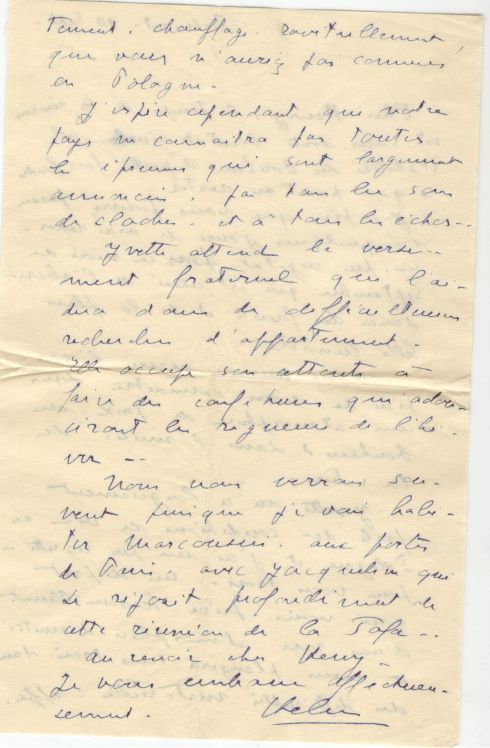 tement, chauffage, ravitaillement,
que vous n'auriez pas connues
en Pologne.
J'espère cependant que notre
pays ne connaitra pas toutes
les épreuves qui sont largement
annoncées, par tous les sons
de cloches, et à tous les échos...
Yvette attend le verse-
ment fraternel qui l'ai-
dera dans de difficultueuses
recherches d'appartement.
Elle occupe son attente à
faire des confitures qui adou-
ciront les rigueurs de l'hi-
ver ...
Nous nous verrons sou-
vent puisque je vais habi-
ter Marcoussis, aux portes
de Paris, avec Jacqueline qui
se réjouit profondément de
cette réunion de la
au revoir cher
Je vous embrasse affectueu-
sement.